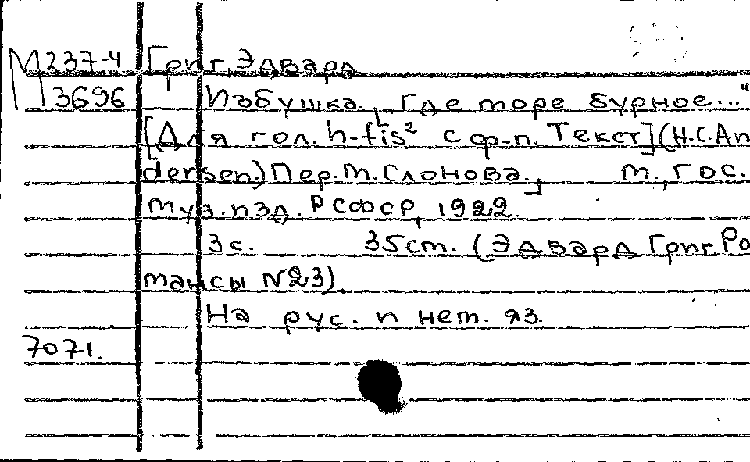 М237-4 Григ, Эдвард
3696 Избушка. „Где море бурное..."
[Для гол. h-fis² с ф-п. Текст] (H.C.An
dersen.) Пер. М. Слонова., М., Гос.
муз. изд. РСФСР, 1922
3с. 35см. (Эдвард Григ. Ро
мансы №23).
На рус. и нем. яз.
7071.